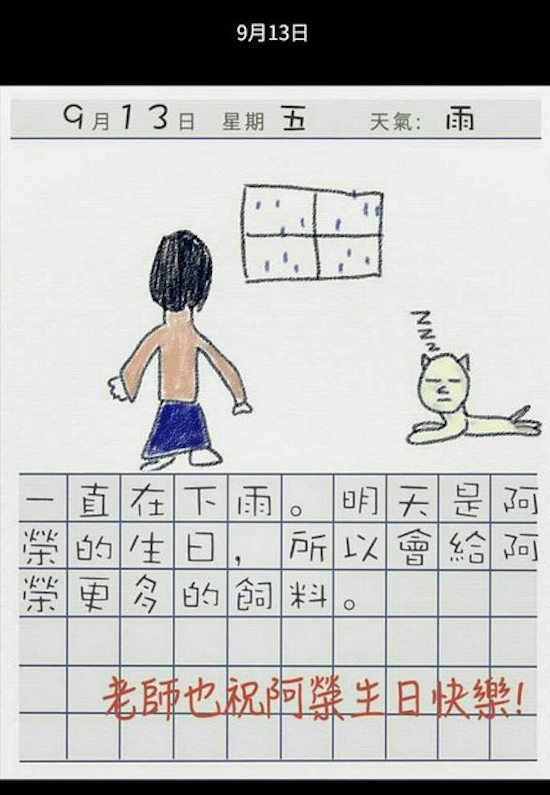 9月13日
9月13日 星期五 天氣: 雨
z
z
z
一直在下雨。明天是阿
榮的生日,所以會給阿
榮更多的飼料。
老師也祝阿榮生日快樂!